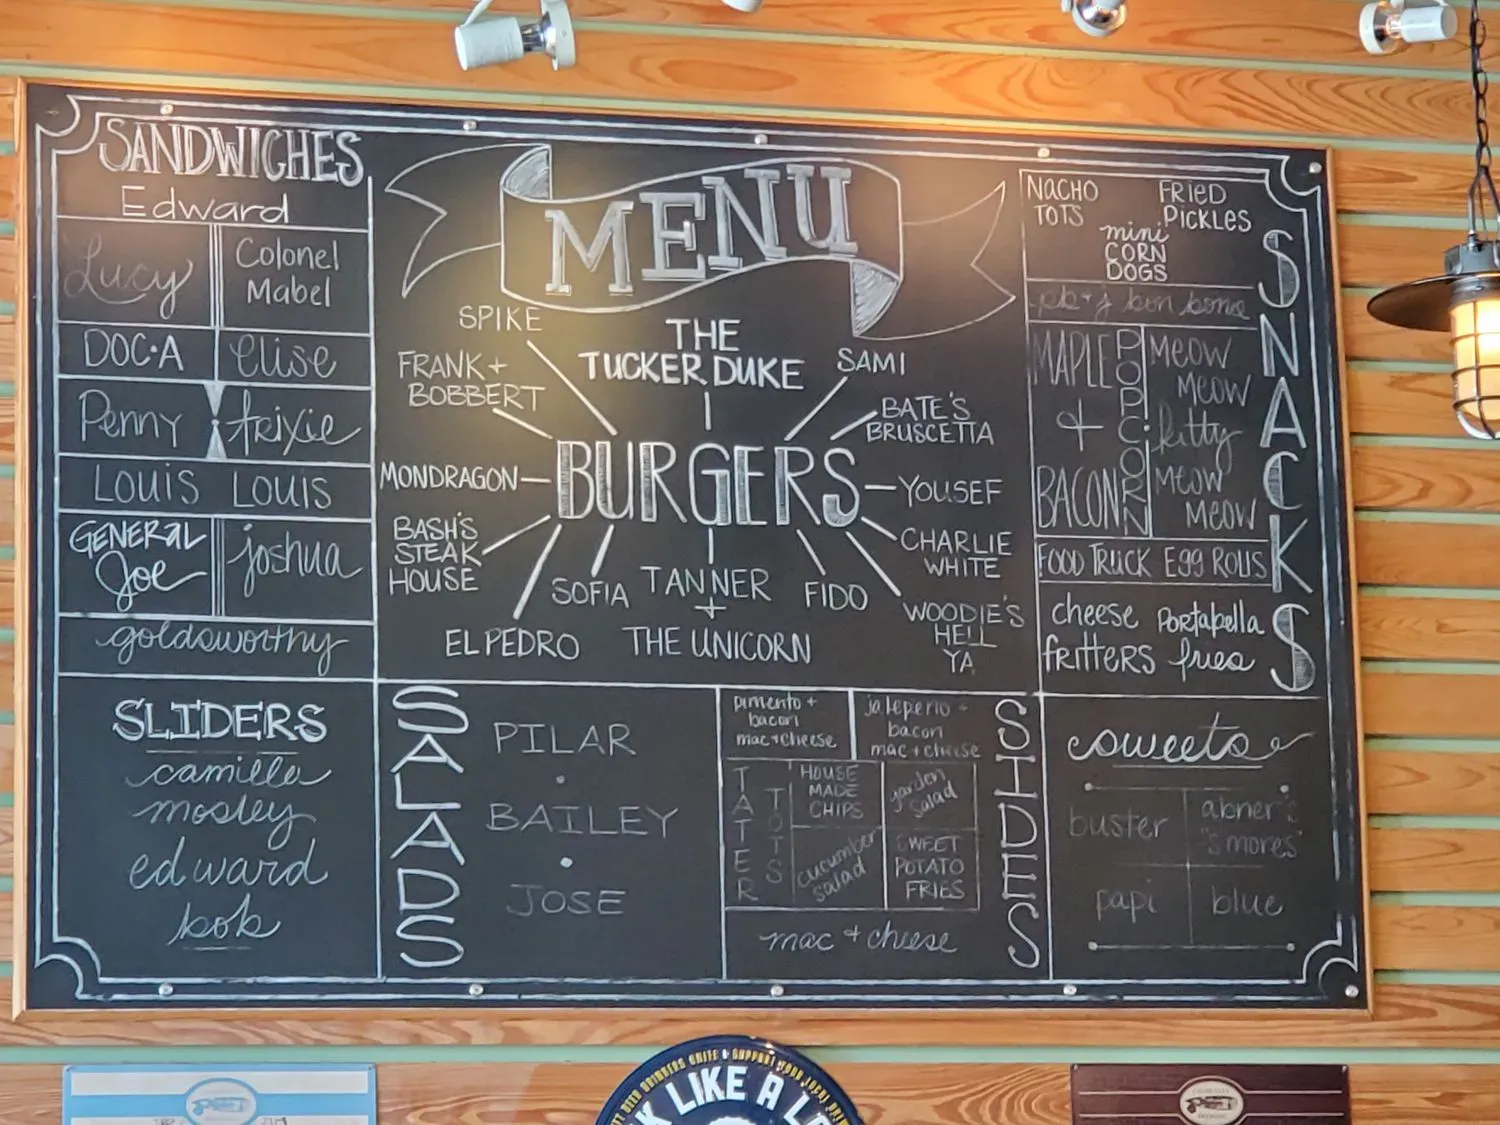 SANDWICHES
Edward
Lucy
Colonel
Mabel
DOC·A
elise
Penny
trixie
LOUIS LOUIS
GENERAL
Joe
joshua
goldsworthy
SLIDERS
camille
mosley
edward
bob
MENU
SPIKE
THE
TUCKER DUKE
SAMI
FRANK +
BOBBERT
BATE'S
BRUSCETTA
MONDRAGON
BURGERS
YOUSEF
BASH'S
STEAK
HOUSE
CHARLIE
WHITE
SOFIA
TANNER
+
THE UNICORN
FIDO
EL PEDRO
WOODIE'S
HELL
YA
SALADS
PILAR
BAILEY
JOSE
SIDES
pimento +
bacon
mac + cheese
jalepeno +
bacon
mac + cheese
TATER
TOTS
HOUSE
MADE
CHIPS
garden
salad
cucumber
salad
SWEET
POTATO
FRIES
mac + cheese
SNACKS
NACHO
TOTS
FRIED
PICKLES
mini
CORN
DOGS
pb + j bon bons
MAPLE
+
BACON
POPCORN
MEOW
MEOW
kitty
MEOW
MEOW
FOOD TRUCK EGG ROLLS
cheese
fritters
Portabella
fries
sweets
buster
abner's
"s'mores"
papi
blue
LIKE A